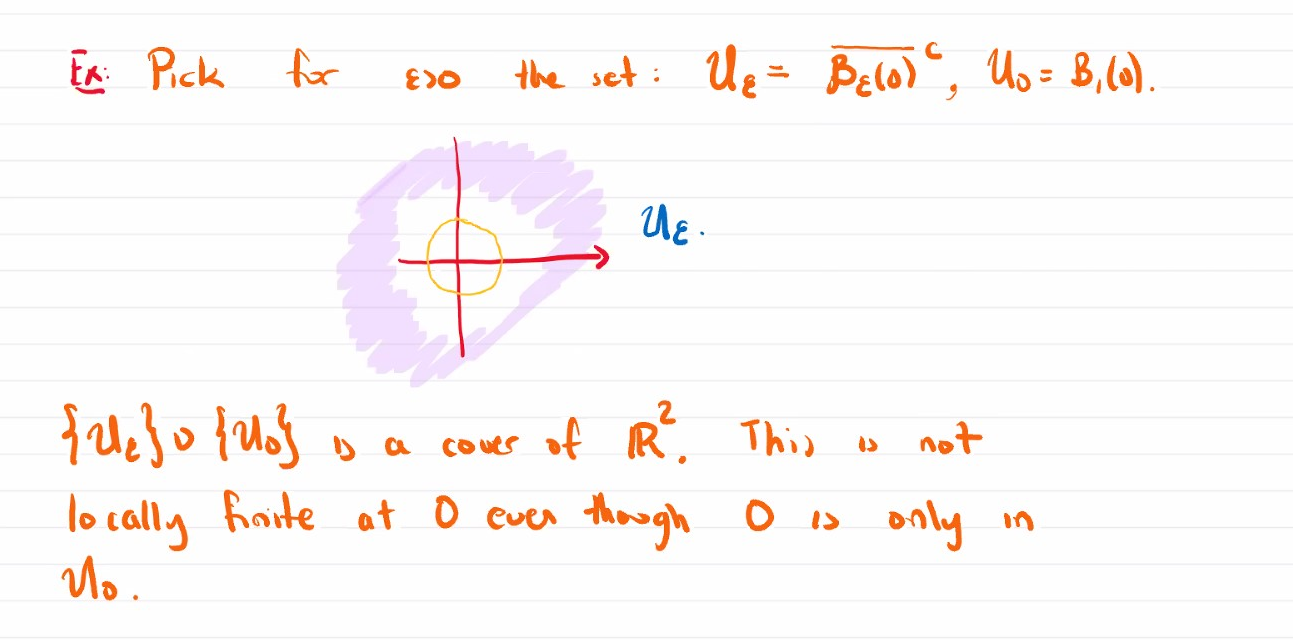 Ex: Pick for ε>0 the set: U_ε = \overline{B_ε(0)}^c, U_0 = B_1(0).
U_ε.
{U_ε} ∪ {U_0} is a cover of ℝ². This is not
locally finite at 0 even though 0 is only in
U_0.